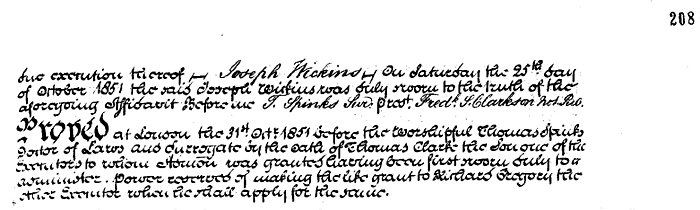 208
due execution thereof — Joseph Wickins — On Saturday the 25th day
of October 1851 the said Joseph Wickins was duly sworn to the truth of the
aforegoing Affidavit Before me T. Spinks Surr. prest. Fredk. S. Clarkson Not. Pub.
Proved at London the 31st Octr. 1851 before the Worshipful Thomas Spinks
Doctor of Laws and Surrogate by the oath of Thomas Clark the Son one of the
Executors to whom Admon was granted having been first sworn duly to
administer. Power reserved of making the like grant to Richard Gregory the
other Executor when he shall apply for the same.